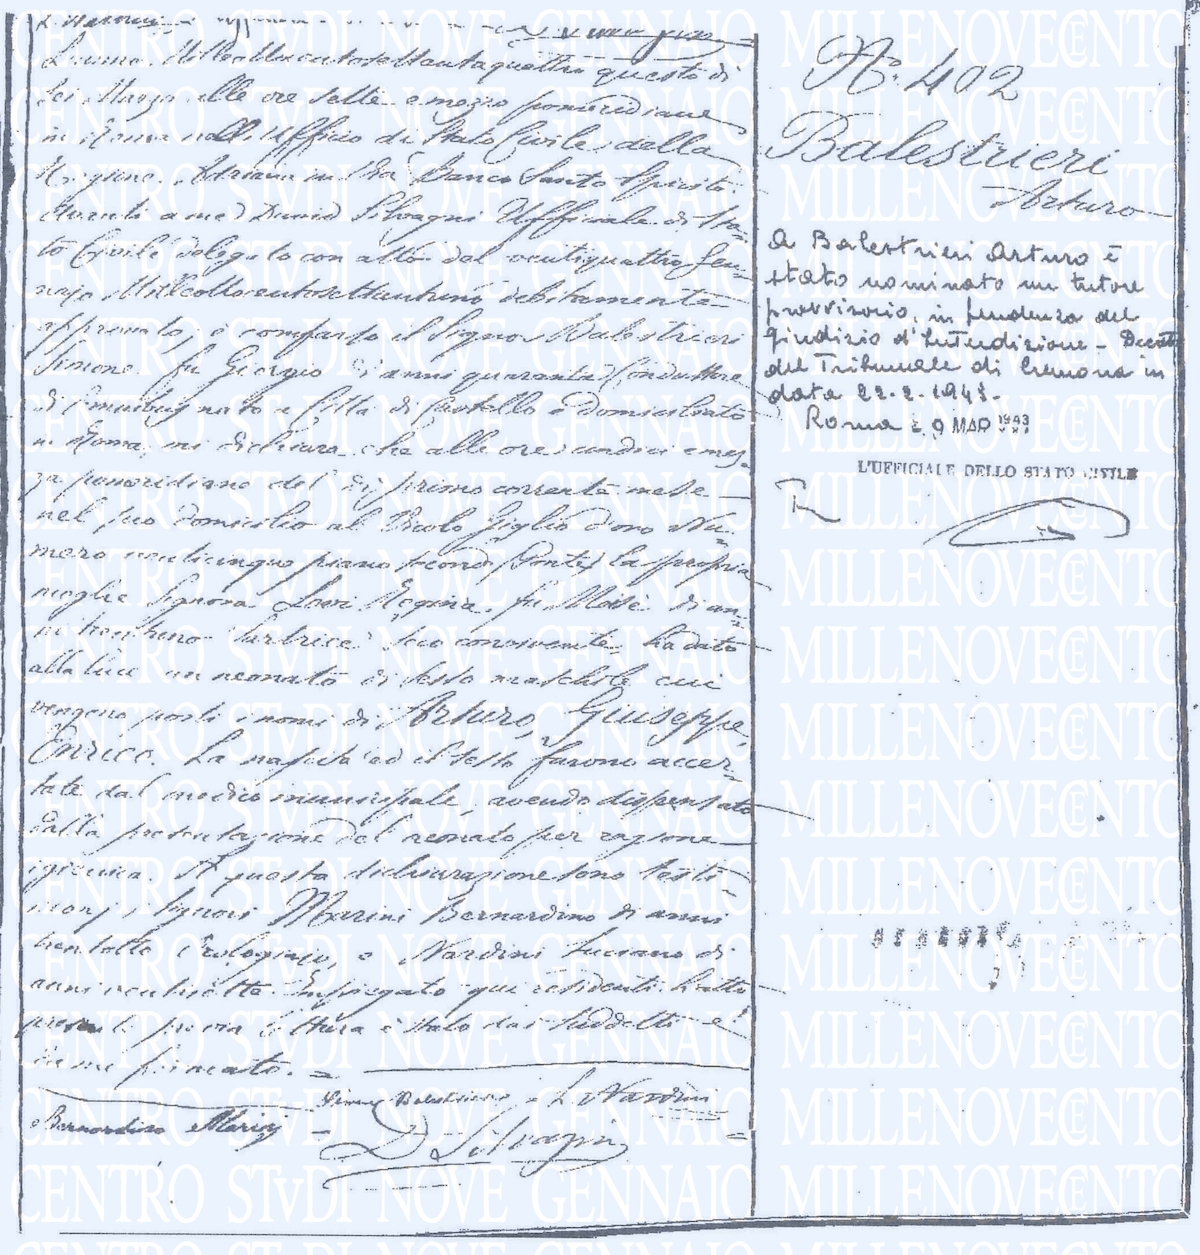 L'anno Milleottocentosettantaquattro questo dì
sei Marzo alle ore sette e mezzo pomeridiane
in Roma nell'Ufficio di Stato Civile della
Regione Adriana in Via Banco Santo Spirito
Avanti a me David Silvagni Ufficiale di Sta-
to Civile delegato con atto del ventiquattro Gen-
najo Milleottocentosettantuno debitamente
approvato, è comparso il Signor Balestrieri
Simone fu Giorgio di anni quaranta Conduttore
di Omnibus nato a Città di Castello e domiciliato
in Roma, mi dichiara che alle ore undici e mez-
za pomeridiane del dì primo corrente mese
nel suo domicilio al Vicolo Giglio d'oro Nu-
mero venticinque piano secondo (Ponte) la propria
moglie Signora Regina, fu Mosè di an-
ni trentuno Sartrice seco convivente, ha dato
alla luce un neonato di sesso maschile cui
vengono posti i nomi di Arturo, Giuseppe,
Enrico. La nascita ed il sesso furono accer-
tate dal medico municipale, avendo dispensato
dalla presentazione del neonato per ragione
igienica. A questa dichiarazione sono testi-
monj i Signori Marini Bernardino di anni
trentotto Orologiajo, e Nardini Luciano di
anni ventisette Impiegato qui residenti L'atto
presente previa lettura è stato dai suddetti e
da me firmato. =
Simone Balestrieri = L Nardini
Bernardino Marini =
D Silvagni =
N.° 402
Balestrieri
Arturo
A Balestrieri Arturo è
stato nominato un tutore
provvisorio, in pendenza del
giudizio d'Interdizione - Decreto
del Tribunale di Cremona in
data 22-2-1943-
Roma 29 MAR 1943
L'UFFICIALE DELLO STATO CIVILE
CENTRO STVDI NOVE GENNAIO MILLENOVECENTO